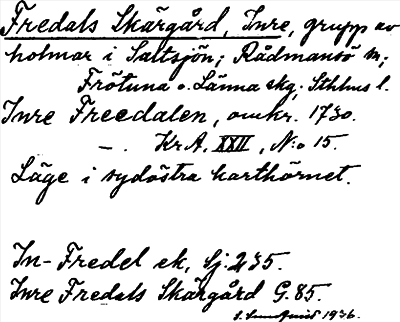 Fredals Skärgård, Inre, grupp av
holmar i Saltsjön; Rådmansö sn;
Frötuna o. Länna skg. Sthlms l.
Inre Freedalen, omkr. 1730.
—. KrA. XXII, N:o 15.
Läge i sydöstra karthörnet.
In-Fredel ek, Sj. 235.
Inre Fredals Skärgård G. 85.
1936.